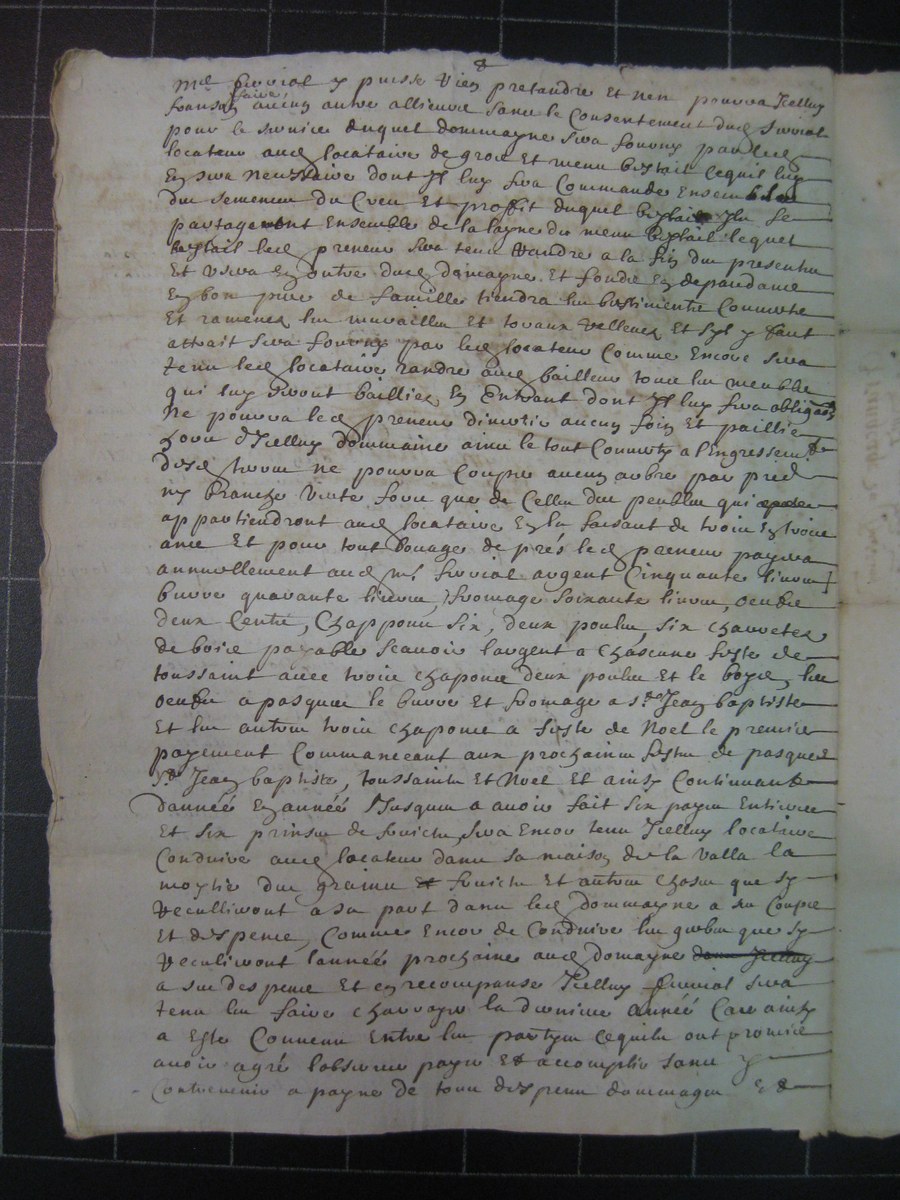 Mre Ferriol y puisse rien pretandre Et nen pourra Icelluy
faire aucun autre allieurs sans le Consentement dud ferriol
pour le service duquel dommayne sera fourny par led
locateur aud locataire de gros Et menu bestail ce quil luy
En sera necessaire dont Il luy fera Commande Ensemble
du Creu Et proffit duquel bestail Ils se
partageront Ensemble de la layne du menu bestail lequel
bestail led preneur sera tenu Randre a la fin du presentes
Et usera En outre dud domayne Et fondz En depandans
En bon pere de famille tiendra les bastimentz Couvertz
Et ramener les murailles Et tovaux Relleves Et syl y faut
attrait sera fourny par led locateur Comme Encore sera
tenu led locataire randre aud bailleur tous les meubles
qui luy seront bailliez En Entrant dont Il luy fera obligaon
Ne pourra led preneur divertir aucun foin Et paillie
hors dIcelluy dommaine ains le tout Convertir a lengressemt
desd terres ne pourra Couper aucun arbre par pied
ny branche verte fors que de Celles des peubles qui
appartiendront aud locataire En les faisant de trois En trois
ans Et pour tout louage de prés led preneur payera
annuellement aud mre ferriol argent Cinquante livres
burre quarante livres, fromage soixante livres, oeufz
deux Centz, Chappons six, deux poules, six charretes
de bois payable scavoir largent a chascune feste de
toussaint avec trois chapons deux poules et le boys, les
oeufz a pasques le burre Et fromage a St Jean baptiste
Et les autres trois chapons a feste de Noel le premier
payement Commanceant aux prochaines festes de pasques
St Jean baptiste, toussaintz Et Noel Et ainsy Continuant
dannée En année Jusques a avoir fait six payes Entieres
Et six prinses de fruictz, sera Encor tenu Icelluy locataire
Conduire aud locateur dans sa maison de la valla la
moytie des grains fruictz Et autres choses que sy
recullieront a sa part dans led dommayne a ses Coupz
Et despens, Comme Encor de Conduire les gerbes que sy
recullieront lannée prochaine aud domayne
a ses despens Et En recompanse Icelluy ferriol sera
tenu les faire charroyer la derniere année Car ainsy
a Esté Convenu Entre les partyes Ce quils ont promis
avoir agré lobserver payer Et accomplir sans y
Contrevenir a payne de tous despens dommages Et